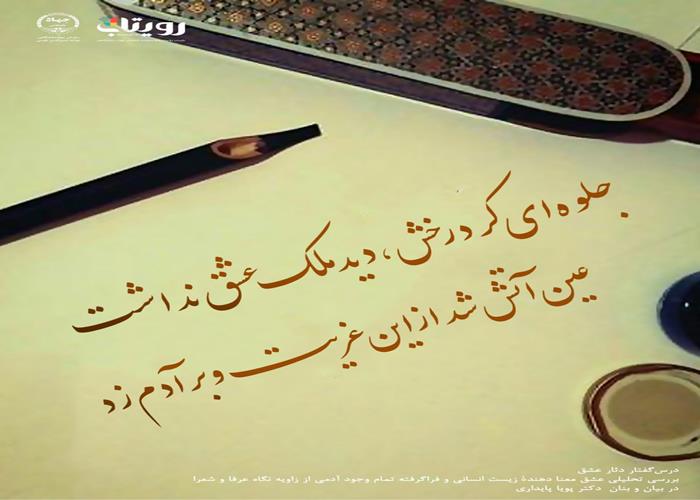 رویتاب
جلوه‌ای کرد رخش، دید ملک عشق نداشت
عین آتش شد از این غیرت و بر آدم زد
درس‌گفتار دثار عشق
بررسی تحلیلی عشق معنا دهندهٔ زیست انسانی و فراگرفته تمام وجود آدمی از زاویه نگاه عرفا و شعرا
در بیان و بنان دکتر پویا پایداری